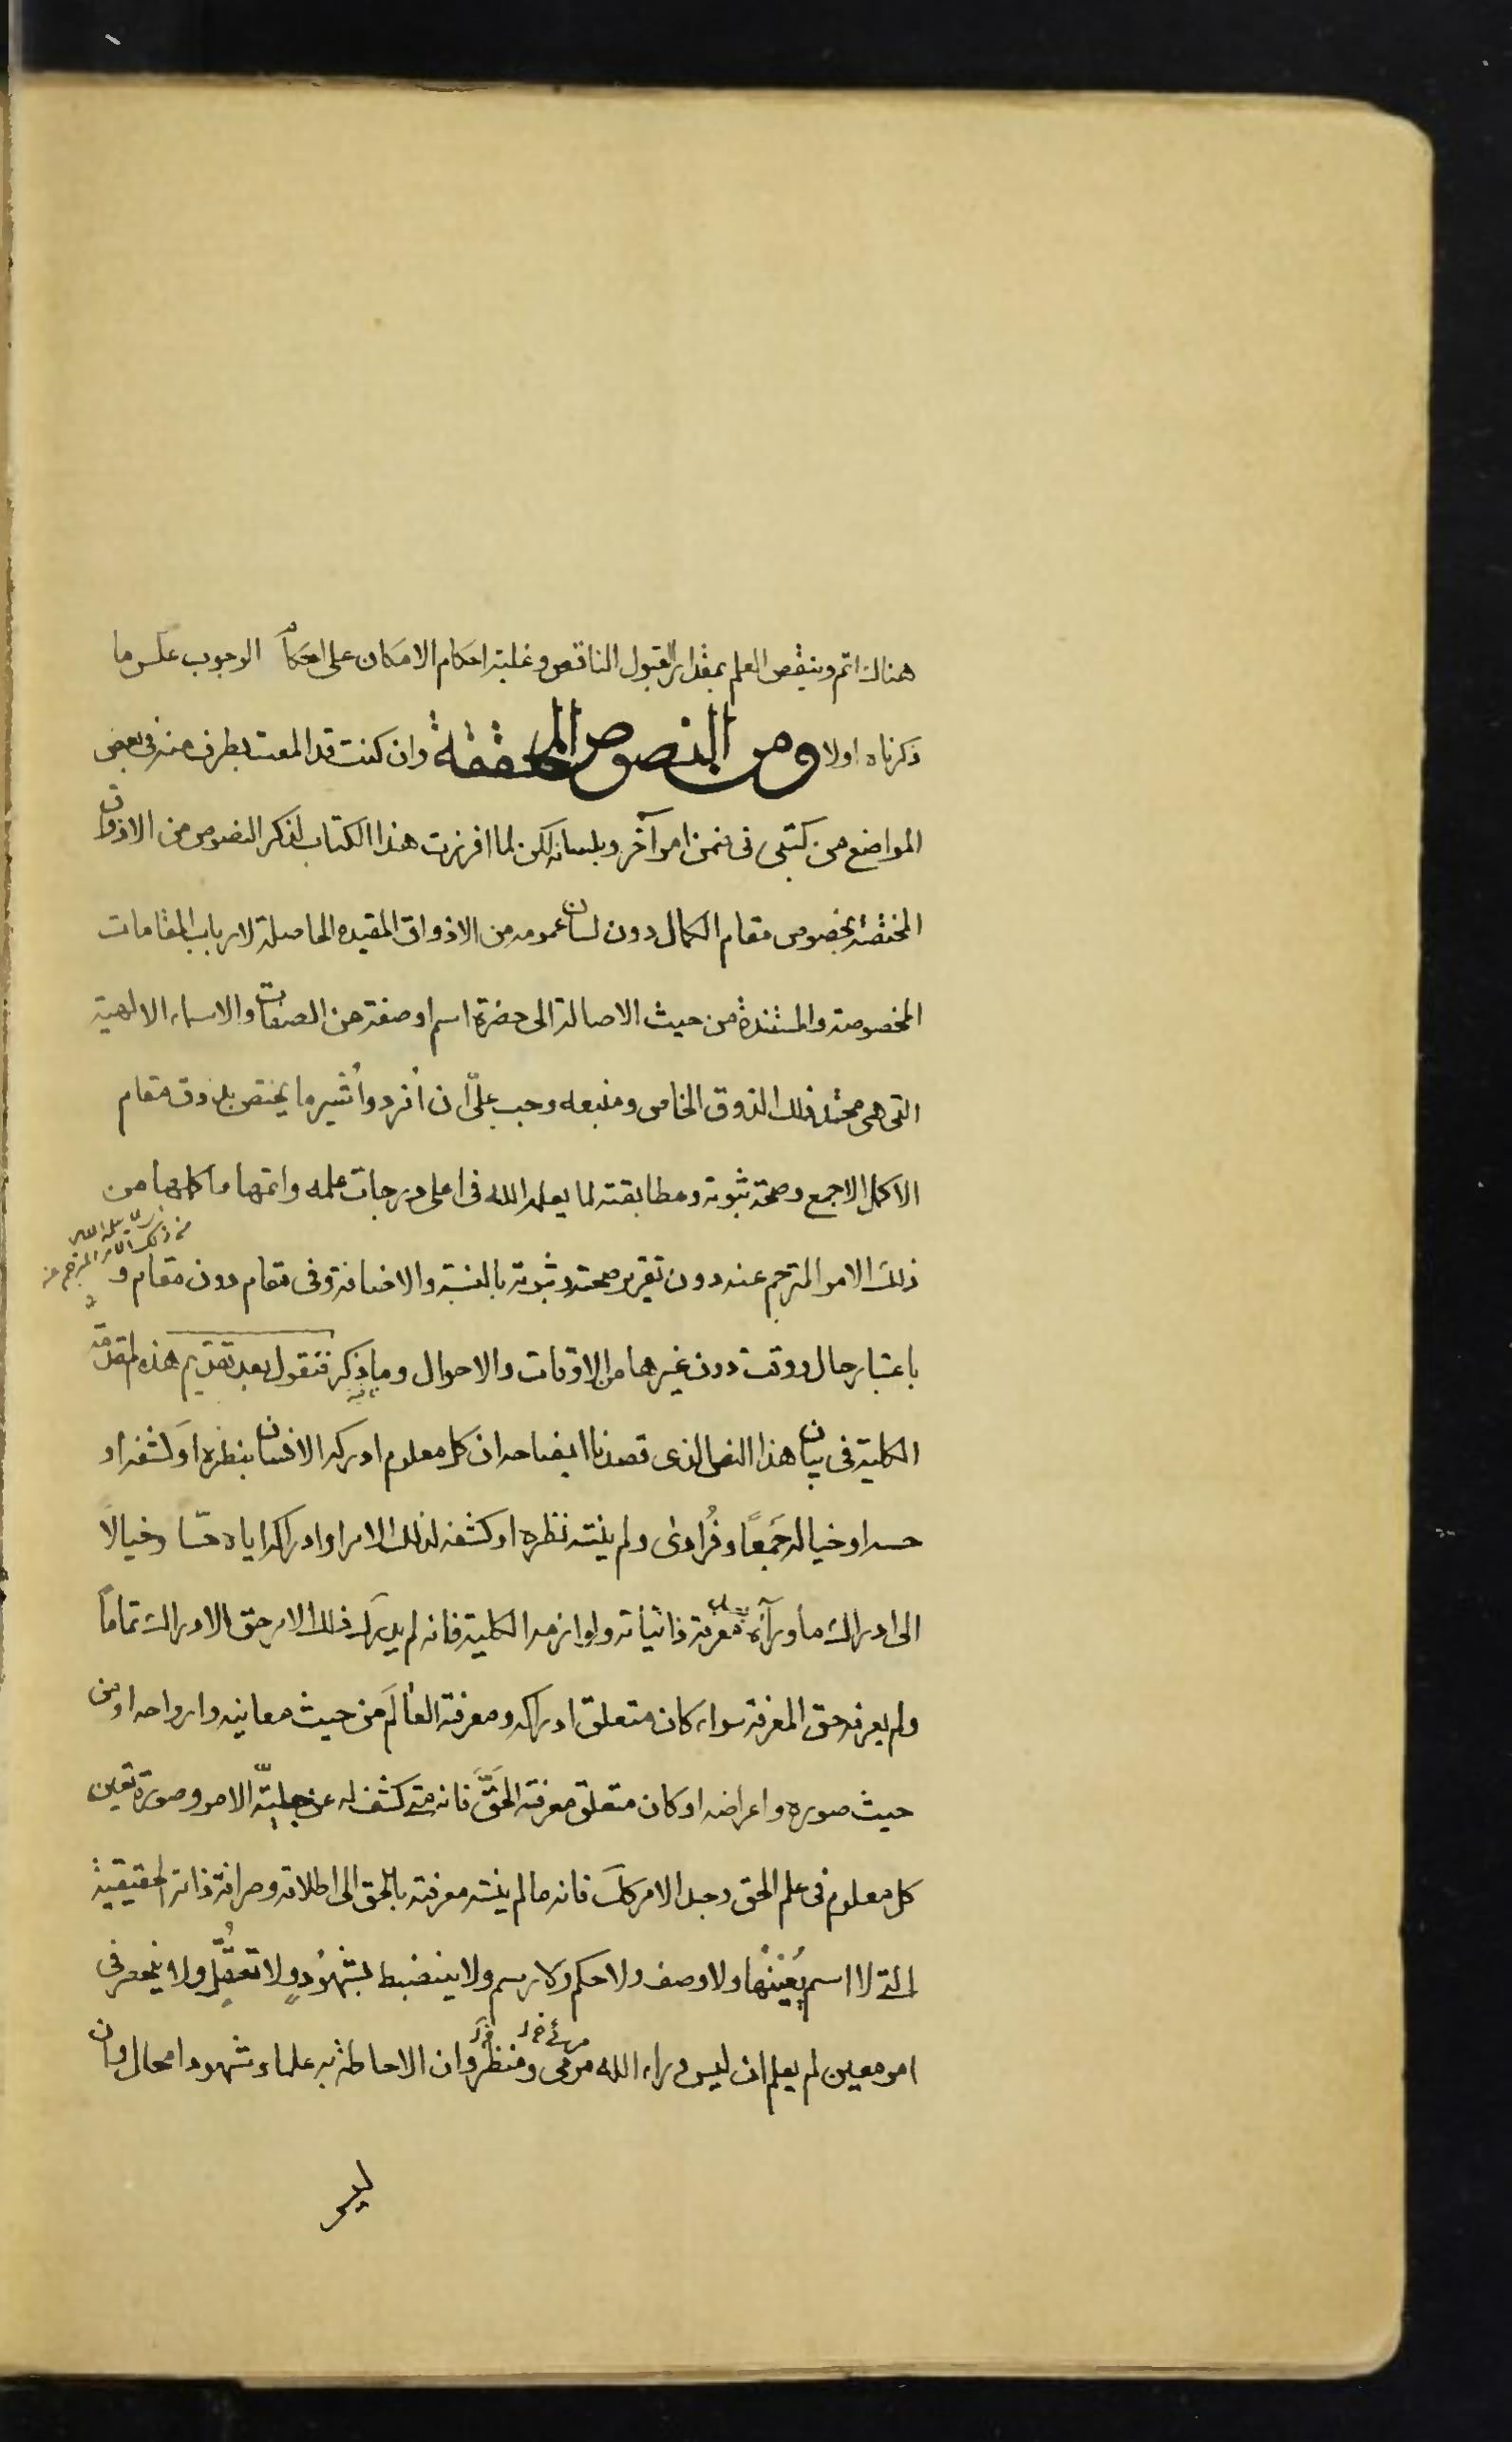 هناك اتم وينقص العلم بمقدار القبول الناقص وغلبة احكام الامكان على احكام الوجوب عكس ما
ذكرناه اولا ومن النصوص المحققة وان كنت قد المعت بطرف منه فى بعض
المواضع من كتبى فى ضمن امر آخر وبلسانه لكن لما افرزت هذا الكتاب لذكر النصوص من الاذواق
المختصة بخصوص مقام الكمال دون لسان عمومه من الاذواق المقيده الحاصلة لارباب المقامات
المخصوصة والمستندة من حيث الاصالة الى حضرة اسم او صفة من الصفات والاسماء الالهية
التى هى محتد ذلك الذوق الخاص ومنبعه وجب علىّ ان أفرد وأشير ما يختص بذوق مقام
الاكمل الاجمع وصحة ثبوته ومطابقته لما يعلمه الله فى اعلى درجات علمه واتمها واكملها من
ذلك الامر المترجم عنه دون تقرير صحته وثبوته بالنسبة والاضافة وفى مقام دون مقام و
باعتبار حال ووقت دون غيرها من الاوقات والاحوال وما ذكر فنقول بعد تقديم هذه المقدمة
الكلية فى بيان هذا النص الذى قصدنا ايضاحه ان كل معلوم ادركه الانسان بنظره او كشفه او
حسه او خياله جَمعًا وفُرادى ولم ينته نظره او كشفه لذلك الامر او ادراكه اياه حسّا وخيالًا
الى ادراك ما وراء معرفة ذاتياته ولوازمه الكلية فانه لم يدرك ذلك الامر حق الادراك تماما
ولم يعرفه حق المعرفة سواء كان متعلق ادراكه ومعرفته العالَم من حيث معانيه وارواحه او من
حيث صوره واعراضه او كان متعلق معرفته الحقَّ فانه متى كشف له عن جليّة الامر وصورة تعين
كل معلوم فى علم الحق وجد الامر كك فانه ما لم ينته معرفته بالحق الى اطلاقه وصرافة ذاته الحقيقية
التى لا اسم يُعيّنها ولا وصف ولا حكم ولا رسم ولا ينضبط بشهُودٍ ولا تعقُّلٍ ولا ينحصر فى
امر معين لم يعلم ان ليس وراء الله مرمى ومنظر وان الاحاطة به علما وشهودا محال وان
ليس